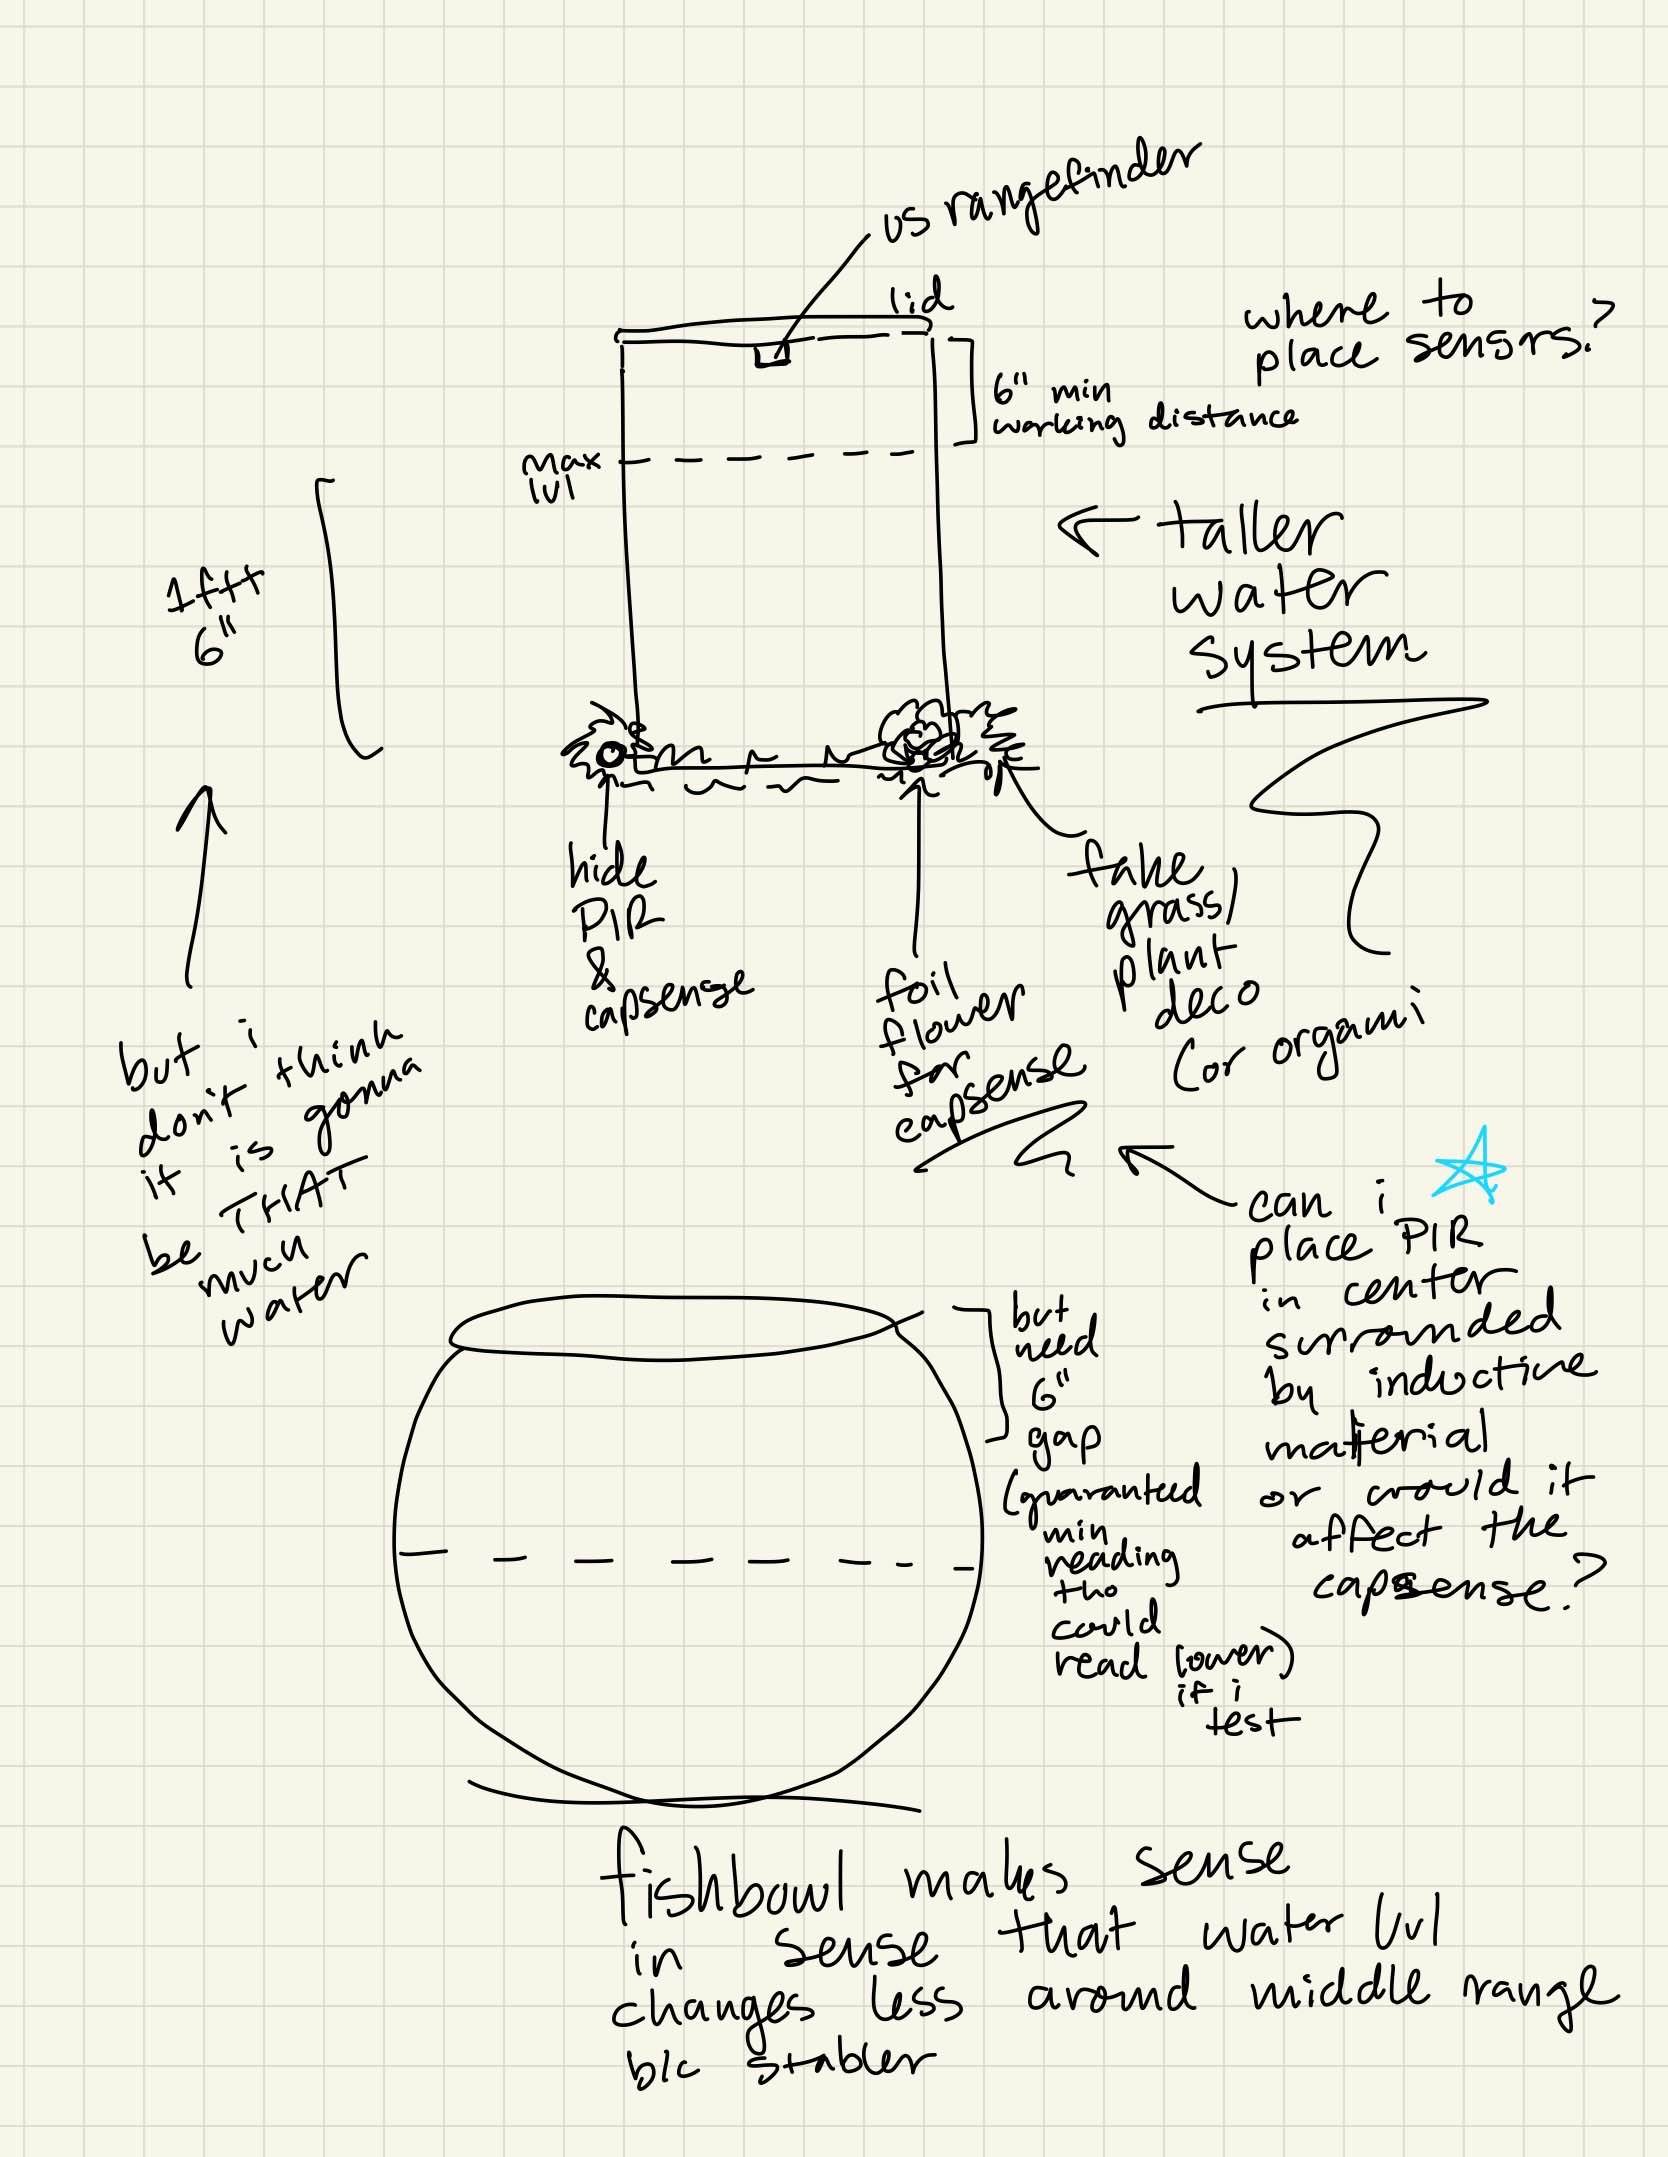 us rangefinder
lid
where to
place sensors?
6" min
working distance
max
lvl
← taller
water
system
1ftt
6"
hide
PIR
&
capsense
foil
flower
for
capsense
fake
grass/
plant
deco
(or orgami
but i
don't think
it is gonna
be THAT
much
water
can i
place PIR
in center
surrounded
by inductive
material
or would it
affect the
capsense?
but
need
6"
gap
(guaranteed
min
reading
tho
could
read lower)
if i
test
fishbowl makes sense
in sense that water lvl
changes less around middle range
b/c stabler